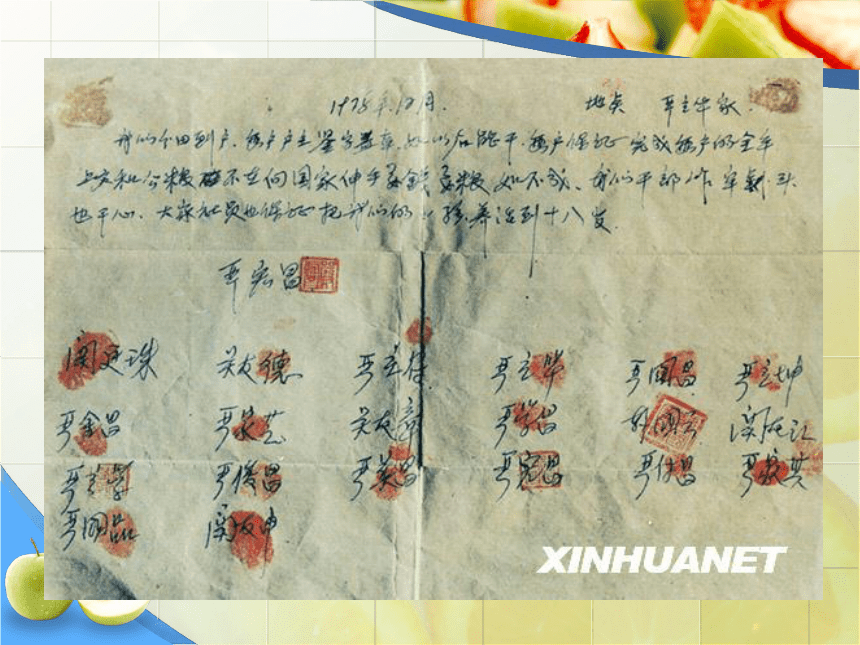 1978年12月. 地点 严立华家.
我们分田到户.每户户主签字盖章.如以后能干.每户保证完成每户的全年
上交和公粮 不在向国家伸手要钱要粮 如不成、我们干部作牢刹头
也干心、大家社员也保证把我们的小孩、养活到十八岁.
严宏昌
关廷珠 关友德 严立符 严立华 严国昌 严立坤
严金昌 严家芝 关友章 严学昌 韩国云 关友江
严立学 严俊昌 严美昌 严宏昌 严付昌 严家其
严国品 关友申
XINHUANET